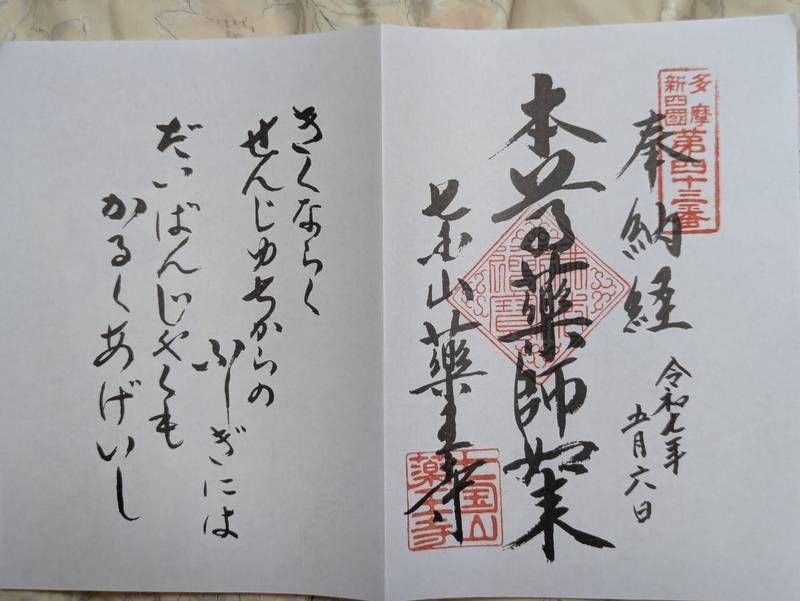 多摩
新四國
第四十三番
奉納経
令和七年
五月六日
本尊藥師如来
七国山藥王寺
七国山
藥王寺
きくならく
せんじゆちからの
ふしぎには
だいばんじやくも
かるくあげいし